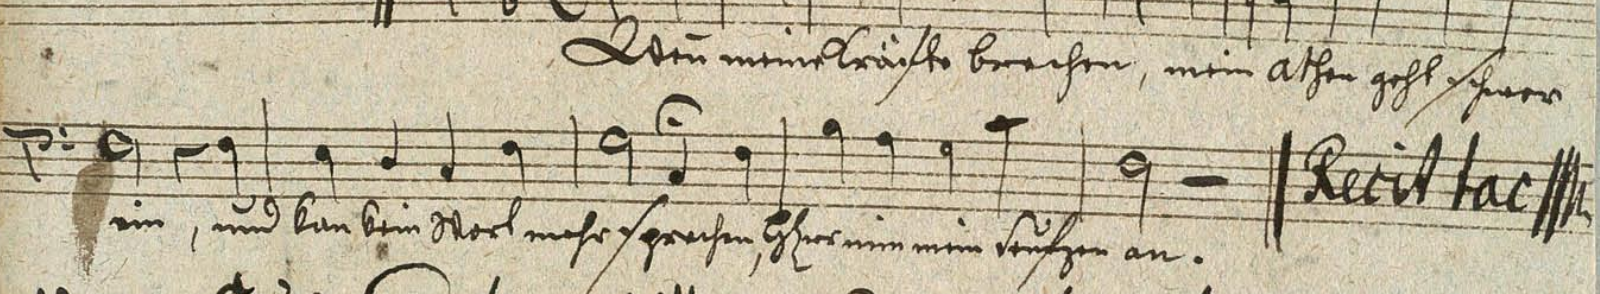 Wen̄ meine kräfte brechen, mein athen geht schwer
ein, und kan kein Wort mehr sprechen, HErr nim mein seufzen an.
Recit tac